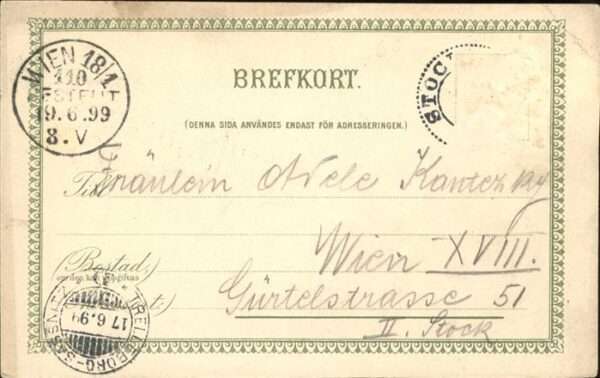 WIEN 18/1
110
BESTELLT
19.6.99
8.V
BREFKORT.
STOC
(DENNA SIDA ANVÄNDES ENDAST FÖR ADRESSERINGEN.)
Till
Fräulein Adele
Wien XVIII.
(Bostad
Gürtelstrasse 51
II. Stock
TRELLEBORG-SASSNITZ
17 6.99